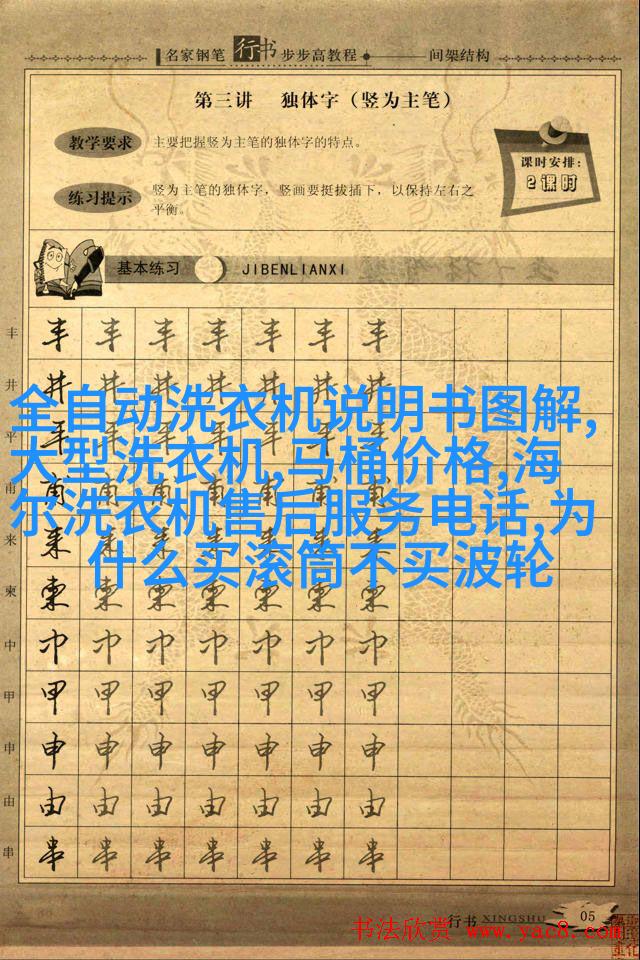 名家钢笔行书步步高教程 间架结构
第三讲 独体字（竖为主笔）
教学要求 主要把握竖为主笔的独体字的特点。
练习提示 竖为主笔的独体字，竖画要挺拔插下，以保持左右之
平衡。
课时安排：
2课时
基本练习 JIBENLIANXI
丰 丰 丰 丰 丰 丰 丰 丰
井 井 井 井 井 井 井 井
全自动洗衣机说明书图解,
平 平 平 平 平 平 平 平
大型洗衣机,马桶价格,海
甫 甫 甫 甫 甫 甫 甫 甫
尔洗衣机售后服务电话,为
来 来 来 来 来 来 来 来
什么买滚筒不买波轮
柬 柬 柬 柬 柬 柬 柬 柬
中 中 中 中 中 中 中 中
甲 甲 甲 甲 甲 甲 甲 甲
申 申 申 申 申 申 申 申
由 由 由 由 由 由 由 由
串 串 串 串 串 串 串 串
行书 XINGSHU 05
书法欣赏 www.yac8.com